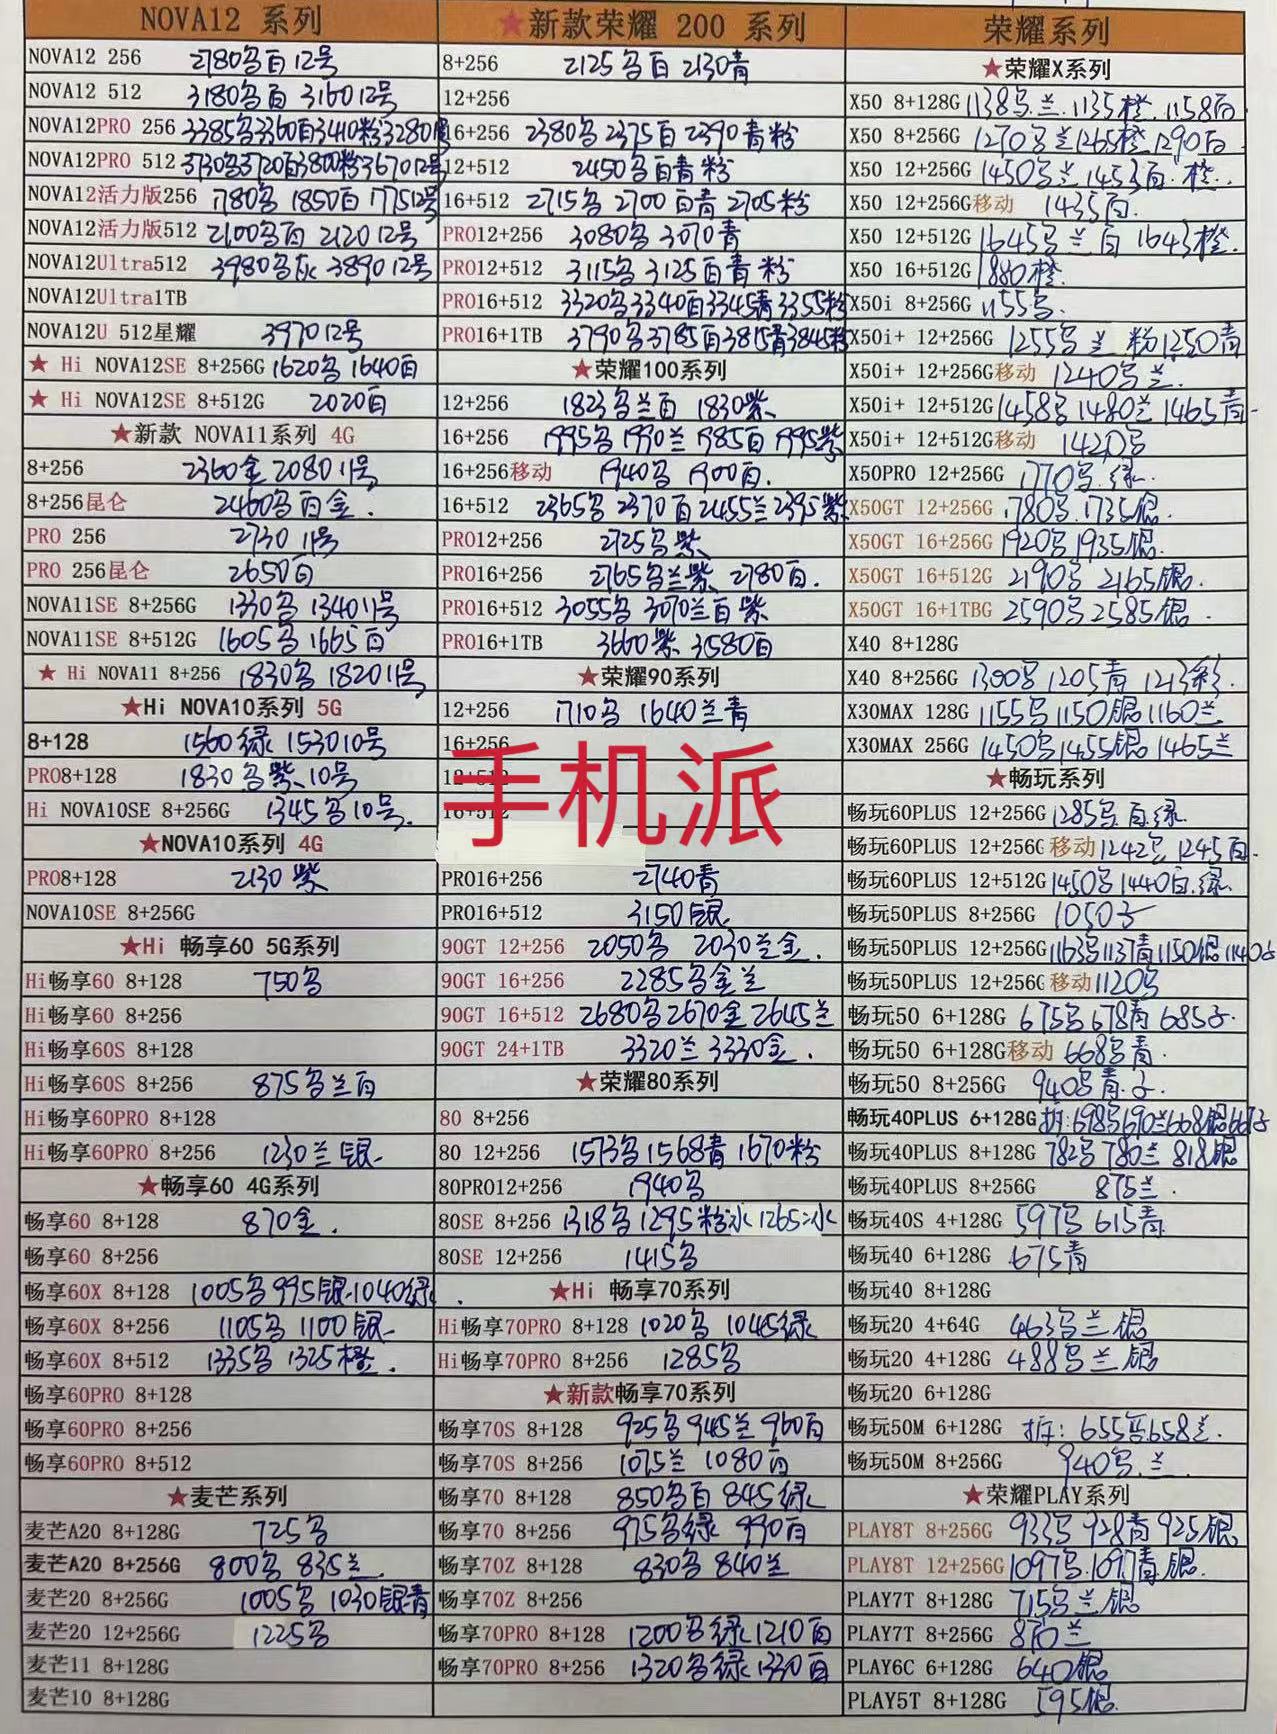 NOVA12 系列
NOVA12 256 2780 白 12号
NOVA12 512 3180 白 3160 12号
NOVA12PRO 256 3385 3360白 3410粉 3280
NOVA12PRO 512 3730 3720白 3800粉 3670 12号
NOVA12活力版256 1780 1850白 1775 12号
NOVA12活力版512 2100 白 2120 12号
NOVA12Ultra512 3980 灰 3890 12号
NOVA12Ultra1TB
NOVA12U 512星耀 3970 12号
★ Hi NOVA12SE 8+256G 1620 1640白
★ Hi NOVA12SE 8+512G 2020白
★新款 NOVA11系列 4G
8+256 2360金 2080 11号
8+256昆仑 2460 白金.
PRO 256 2730 11号
PRO 256昆仑 2650白
NOVA11SE 8+256G 1330 1340 11号
NOVA11SE 8+512G 1605 1665白
★ Hi NOVA11 8+256 1830 1820 11号
★Hi NOVA10系列 5G
8+128 1560绿 1530 10号
PRO8+128 1830 紫.10号
Hi NOVA10SE 8+256G 1345 10号.
★NOVA10系列 4G
PRO8+128 2130紫
NOVA10SE 8+256G
★Hi 畅享60 5G系列
Hi畅享60 8+128 750
Hi畅享60 8+256
Hi畅享60S 8+128
Hi畅享60S 8+256 875 兰白
Hi畅享60PRO 8+128
Hi畅享60PRO 8+256 1230兰银
★畅享60 4G系列
畅享60 8+128 870金.
畅享60 8+256
畅享60X 8+128 1005 995银 1040绿
畅享60X 8+256 1105 1100银
畅享60X 8+512 1335 1325橙.
畅享60PRO 8+128
畅享60PRO 8+256
畅享60PRO 8+512
★麦芒系列
麦芒A20 8+128G 725
麦芒A20 8+256G 800 835兰
麦芒20 8+256G 1005 1030银青
麦芒20 12+256G 1225
麦芒11 8+128G
麦芒10 8+128G
★新款荣耀 200 系列
8+256 2125 白 2130青
12+256
16+256 2380 2375白 2390青粉
12+512 2450 白青粉
16+512 2715 2700白青 2705粉
PRO12+256 3080 3070青
PRO12+512 3115 3125白青粉
PRO16+512 3320 3340白 3345青 3355粉
PRO16+1TB 3790 3785白 3815青 3845粉
★荣耀100系列
12+256 1823 兰白 1830紫
16+256 1995 1990兰 1985白 1995紫
16+256移动 1940 1900白.
16+512 2365 2370白 2455兰 2395紫
PRO12+256 2725 紫
PRO16+256 2765 兰紫 2780白.
PRO16+512 3055 3070兰白紫
PRO16+1TB 3660紫 3580白
★荣耀90系列
12+256 1710 1640兰青
16+256
12+512
16+512
手机派
PRO16+256 2740青
PRO16+512 3150银
90GT 12+256 2050 2030兰金.
90GT 16+256 2285 金兰
90GT 16+512 2680 2670金 2645兰
90GT 24+1TB 3320兰 3330金.
★荣耀80系列
80 8+256
80 12+256 1573 1568青 1670粉
80PRO12+256 1940
80SE 8+256 1318 1295粉冰 1265冰
80SE 12+256 1415
★Hi 畅享70系列
Hi畅享70PRO 8+128 1020 1045绿
Hi畅享70PRO 8+256 1285
★新款畅享70系列
畅享70S 8+128 925 945兰 960白
畅享70S 8+256 1075兰 1080白
畅享70 8+128 850 白 845绿
畅享70 8+256 975 绿 990白
畅享70Z 8+128 830 840兰
畅享70Z 8+256
畅享70PRO 8+128 1200 绿 1210白
畅享70PRO 8+256 1320 绿 1330白
荣耀系列
★荣耀X系列
X50 8+128G 1138 兰.1135橙.1158白
X50 8+256G 1270 兰 1265橙 1290白
X50 12+256G 1450 兰 1453白.橙.
X50 12+256G移动 1435白.
X50 12+512G 1645 兰白 1643橙.
X50 16+512G 1880橙.
X50i 8+256G 1155
X50i+ 12+256G 1255 兰 粉 1250青
X50i+ 12+256G移动 1240 兰.
X50i+ 12+512G 1458 1480兰 1465青
X50i+ 12+512G移动 1420
X50PRO 12+256G 1770 绿.
X50GT 12+256G 1780 1735银.
X50GT 16+256G 1920 1935银.
X50GT 16+512G 2190 2165银.
X50GT 16+1TBG 2590 2585银.
X40 8+128G
X40 8+256G 1300 1205青 1213彩.
X30MAX 128G 1155 1150银 1160兰
X30MAX 256G 1450 1455银 1465兰
★畅玩系列
畅玩60PLUS 12+256G 1285 白.绿
畅玩60PLUS 12+256G 移动 1242 1245白.
畅玩60PLUS 12+512G 1450 1440白.绿.
畅玩50PLUS 8+256G 1050
畅玩50PLUS 12+256G 1163 1137青 1150银 1140
畅玩50PLUS 12+256G 移动 1120
畅玩50 6+128G 675 678青 685
畅玩50 6+128G移动 668 青.
畅玩50 8+256G 940 青.
畅玩40PLUS 6+128G 拆:698 690兰 668银
畅玩40PLUS 8+128G 782 780兰 818银
畅玩40PLUS 8+256G 875兰.
畅玩40S 4+128G 597 615青
畅玩40 6+128G 675青
畅玩40 8+128G
畅玩20 4+64G 463 兰 银
畅玩20 4+128G 488 兰 银
畅玩20 6+128G
畅玩50M 6+128G 拆:655 658兰.
畅玩50M 8+256G 940 兰.
★荣耀PLAY系列
PLAY8T 8+256G 933 928青 925银
PLAY8T 12+256G 1097 1097青 银.
PLAY7T 8+128G 715 兰银
PLAY7T 8+256G 870兰
PLAY6C 6+128G 640银
PLAY5T 8+128G 595银